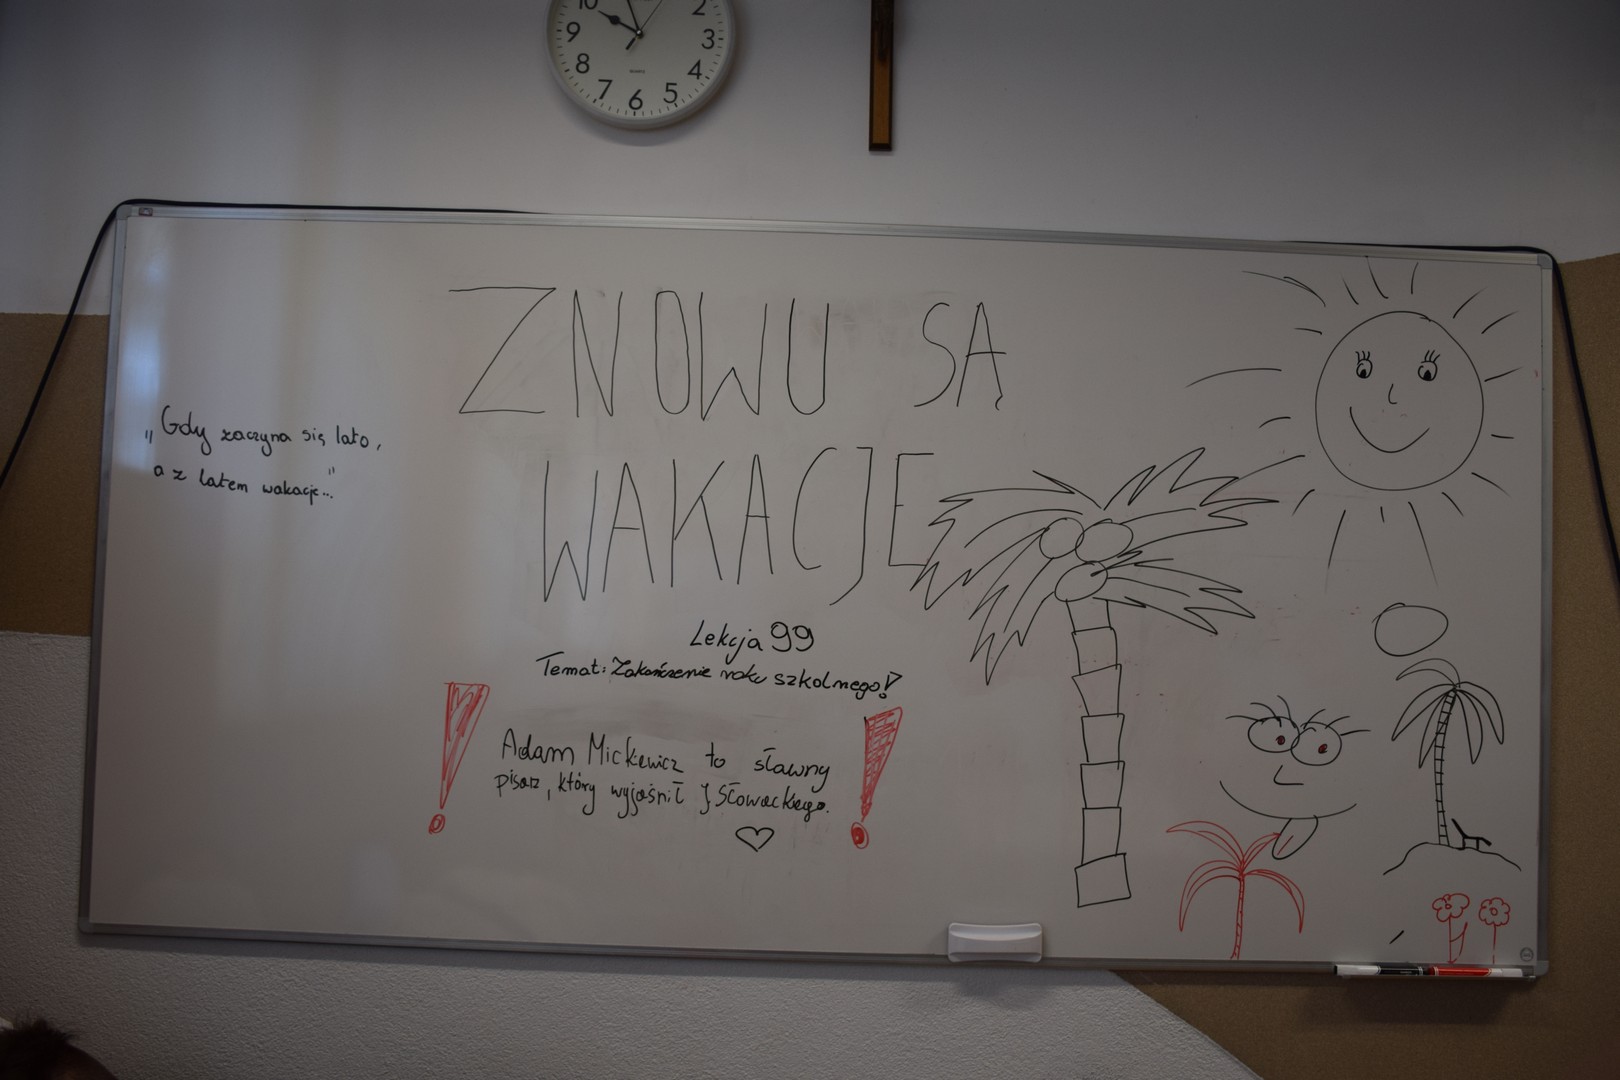 10
2
9
3
8
4
7
5
6
QUARTZ
ZNOWU SĄ
WAKACJE
„Gdy zaczyna się lato,
a z latem wakacje..."
Lekcja 99
Temat: Zakończenie roku szkolnego!
Adam Mickiewicz to sławny
pisarz, który wyjaśnił J. Słowackiego.